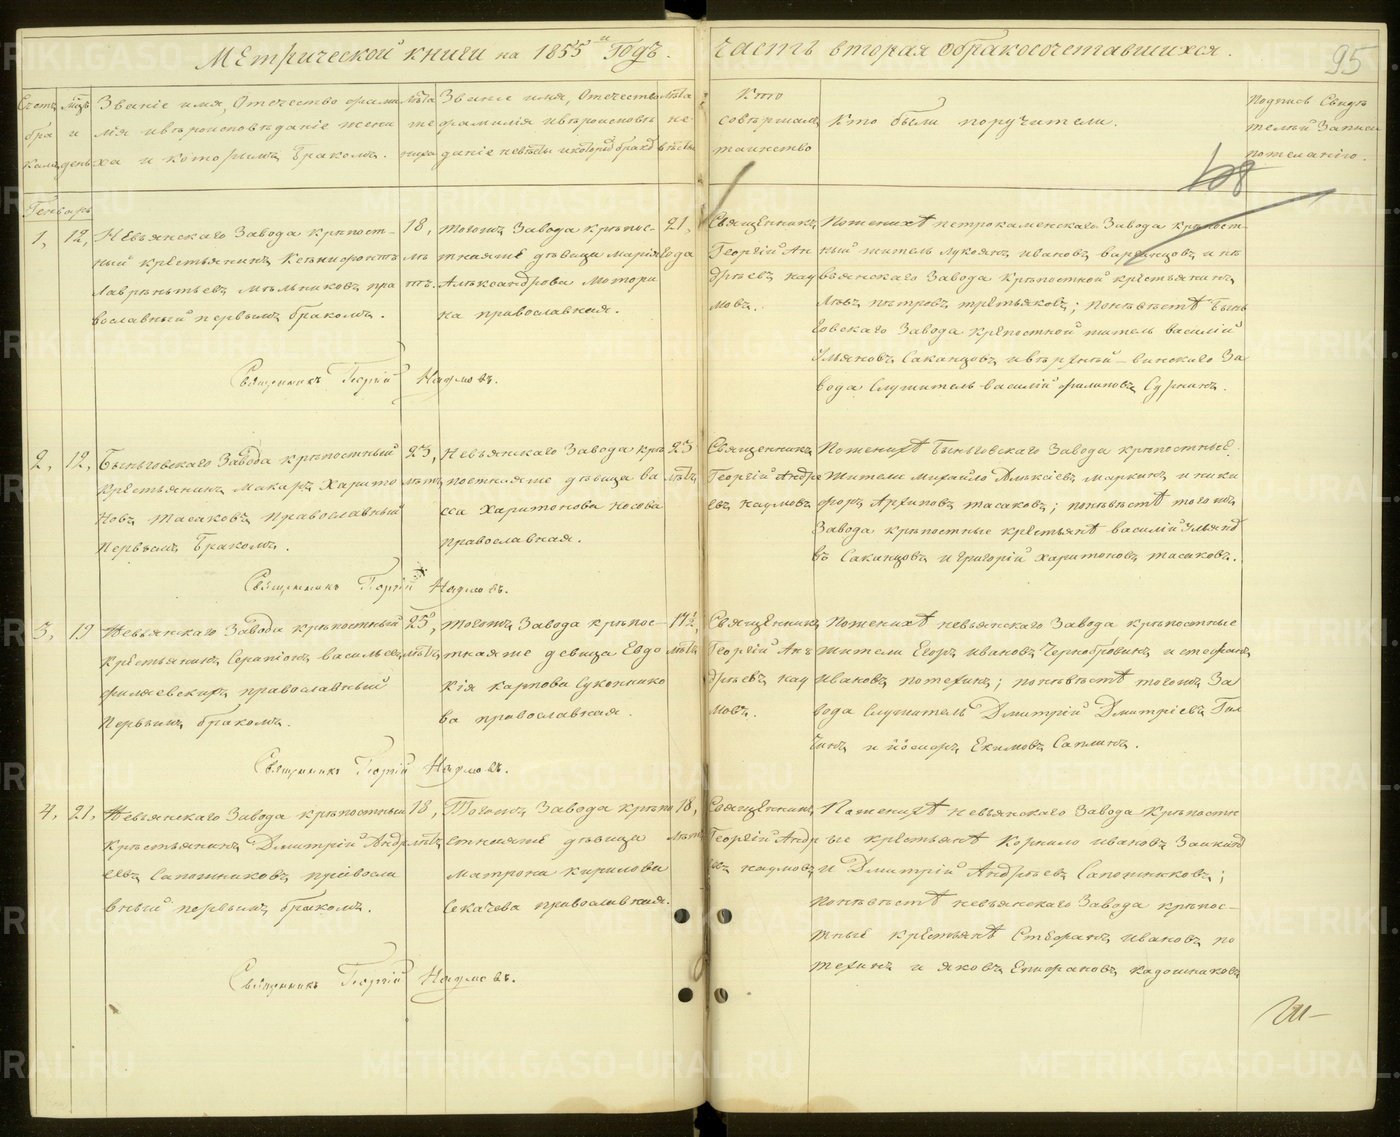 Метрической книги на 1855й Годъ.
часть вторая обракосочетавшихся.
95
Счетъ бра кавъ
Мѣцъ и день
Званіе имя, Отечество фами
лія ивѣроисповѣданіе жени
ха и которымъ бракомъ.
Лѣта же ниха
Званіе имя, Отечество
фамилія ивѣроисповѣ
даніе невѣсты икоторымъ бракомъ
Лѣта не вѣсты
Кто
совѣршалъ
таинство
Кто были поручители.
Подпись Свидѣ
телей Записи
пожеланію.
108
Генварь
1, 12,
Невьянскаго Завода крѣпост-
ный крестьянинъ Ксенифонтъ
Лаврѣнтьевъ Мѣльниковъ пра
вославный первымъ бракомъ.
18, лѣтъ.
тогожъ Завода крѣпос-
тнаяже дѣвица Марія
Алѣксандрова Мотори
на православная.
21, Года
Священникъ
Георгій Ан
дрѣевъ нау
мовъ.
Поженихѣ петрокаменскаго Завода крѣпост-
ный житель лукоянъ ивановъ варинцовъ и нѣ
вьянскаго Завода Крѣпостной крѣстьянинъ
Лѣвъ пѣтровъ трѣтьяковъ; поневѣстѣ Бынь
говскаго Завода крѣпостной житель василій
Ульяновъ Саканцовъ ивѣрхный-винскаго За
вода Служитель василій филиповъ Сурнинъ.
Священникъ Георгій Наумовъ.
2, 12,
Быньговскаго Завода крѣпостный
крѣстьянинъ Макаръ Харито
новъ Масаковъ православный
первымъ бракомъ.
23, лѣтъ
Невьянскаго Завода крѣ
постнаяже дѣвица ва
сса Харитонова носова
православная.
23 лѣтъ
Священникъ
Георгій Андре
евъ наумовъ
Поженихѣ Быньговскаго Завода крѣпостные
жители михайло Алѣксіевъ маркинъ и ники
форъ Архиповъ масаковъ; поневѣстѣ тогожъ
Завода крѣпостные крестьянѣ василій Ульяно
въ Саканцовъ и григорій харитоновъ масаковъ.
Священникъ Георгій Наумовъ.
3, 19
Невьянскаго Завода крѣпостный
крѣстьянинъ Серапіонъ васильевъ
филяевскихъ православный
первымъ бракомъ.
25, лѣтъ
тогожъ Завода крѣпос-
тнаяже девица Евдо
кія карпова Суконнико
ва православная.
17½, лѣтъ
Священникъ
Георгій Ан
дрѣевъ нау
мовъ.
Поженихѣ невьянскаго Завода крѣпостные
жители Егоръ ивановъ Чернобровинъ и стефанъ
ивановъ потехинъ; поневѣстѣ тогожъ За
вода Служитель Дмитрій Дмитріевъ Гил
чинъ и Іосифъ Екимовъ Саплинъ.
Священникъ Георгій Наумовъ.
4, 21,
Невьянскаго Завода крѣпостный
крѣстьянинъ Дмитрій Андре
евъ Сапожниковъ правосла
вный первымъ бракомъ.
18, лѣтъ
Тогожъ Завода крѣпо
стнаяже дѣвица
матрона кирилова
Секачева православная.
18, лѣтъ
Священникъ
Георгій Андр
еевъ наумовъ
Поженихѣ невьянскаго Завода Крѣпостн
ые крестьянѣ Корнило ивановъ Заикинъ
и Дмитрій Андрѣевъ Сапожниковъ;
поневѣстѣ невьянскаго Завода крѣпос-
тные крестьянѣ Стефанъ ивановъ по
техинъ и яковъ Епифановъ кадошниковъ
Священникъ Георгій Наумовъ.